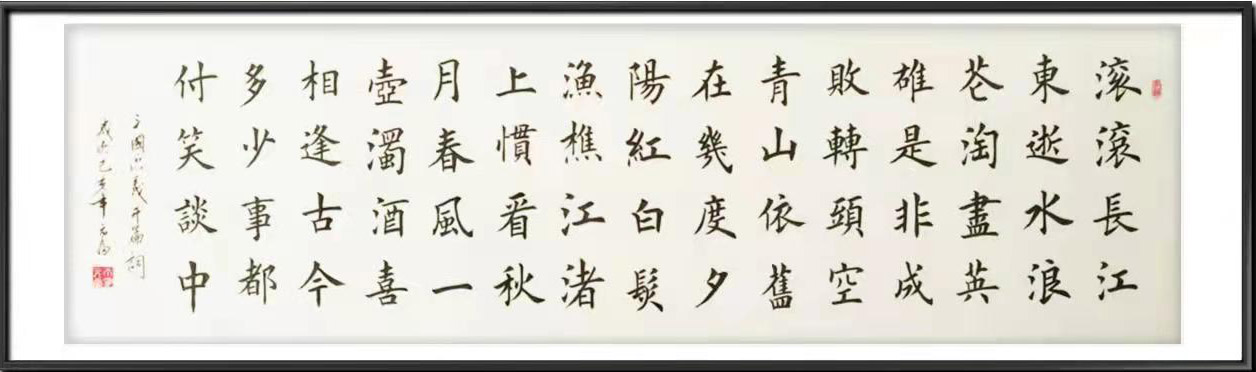 滚滚長江
東逝水浪
花淘盡英
雄是非成
敗轉頭空
青山依舊
在幾度夕
陽紅白髮
漁樵江渚
上慣看秋
月春風一
壺濁酒喜
相逢古今
多少事都
付笑談中
三國演義开篇詞
歲次己亥年